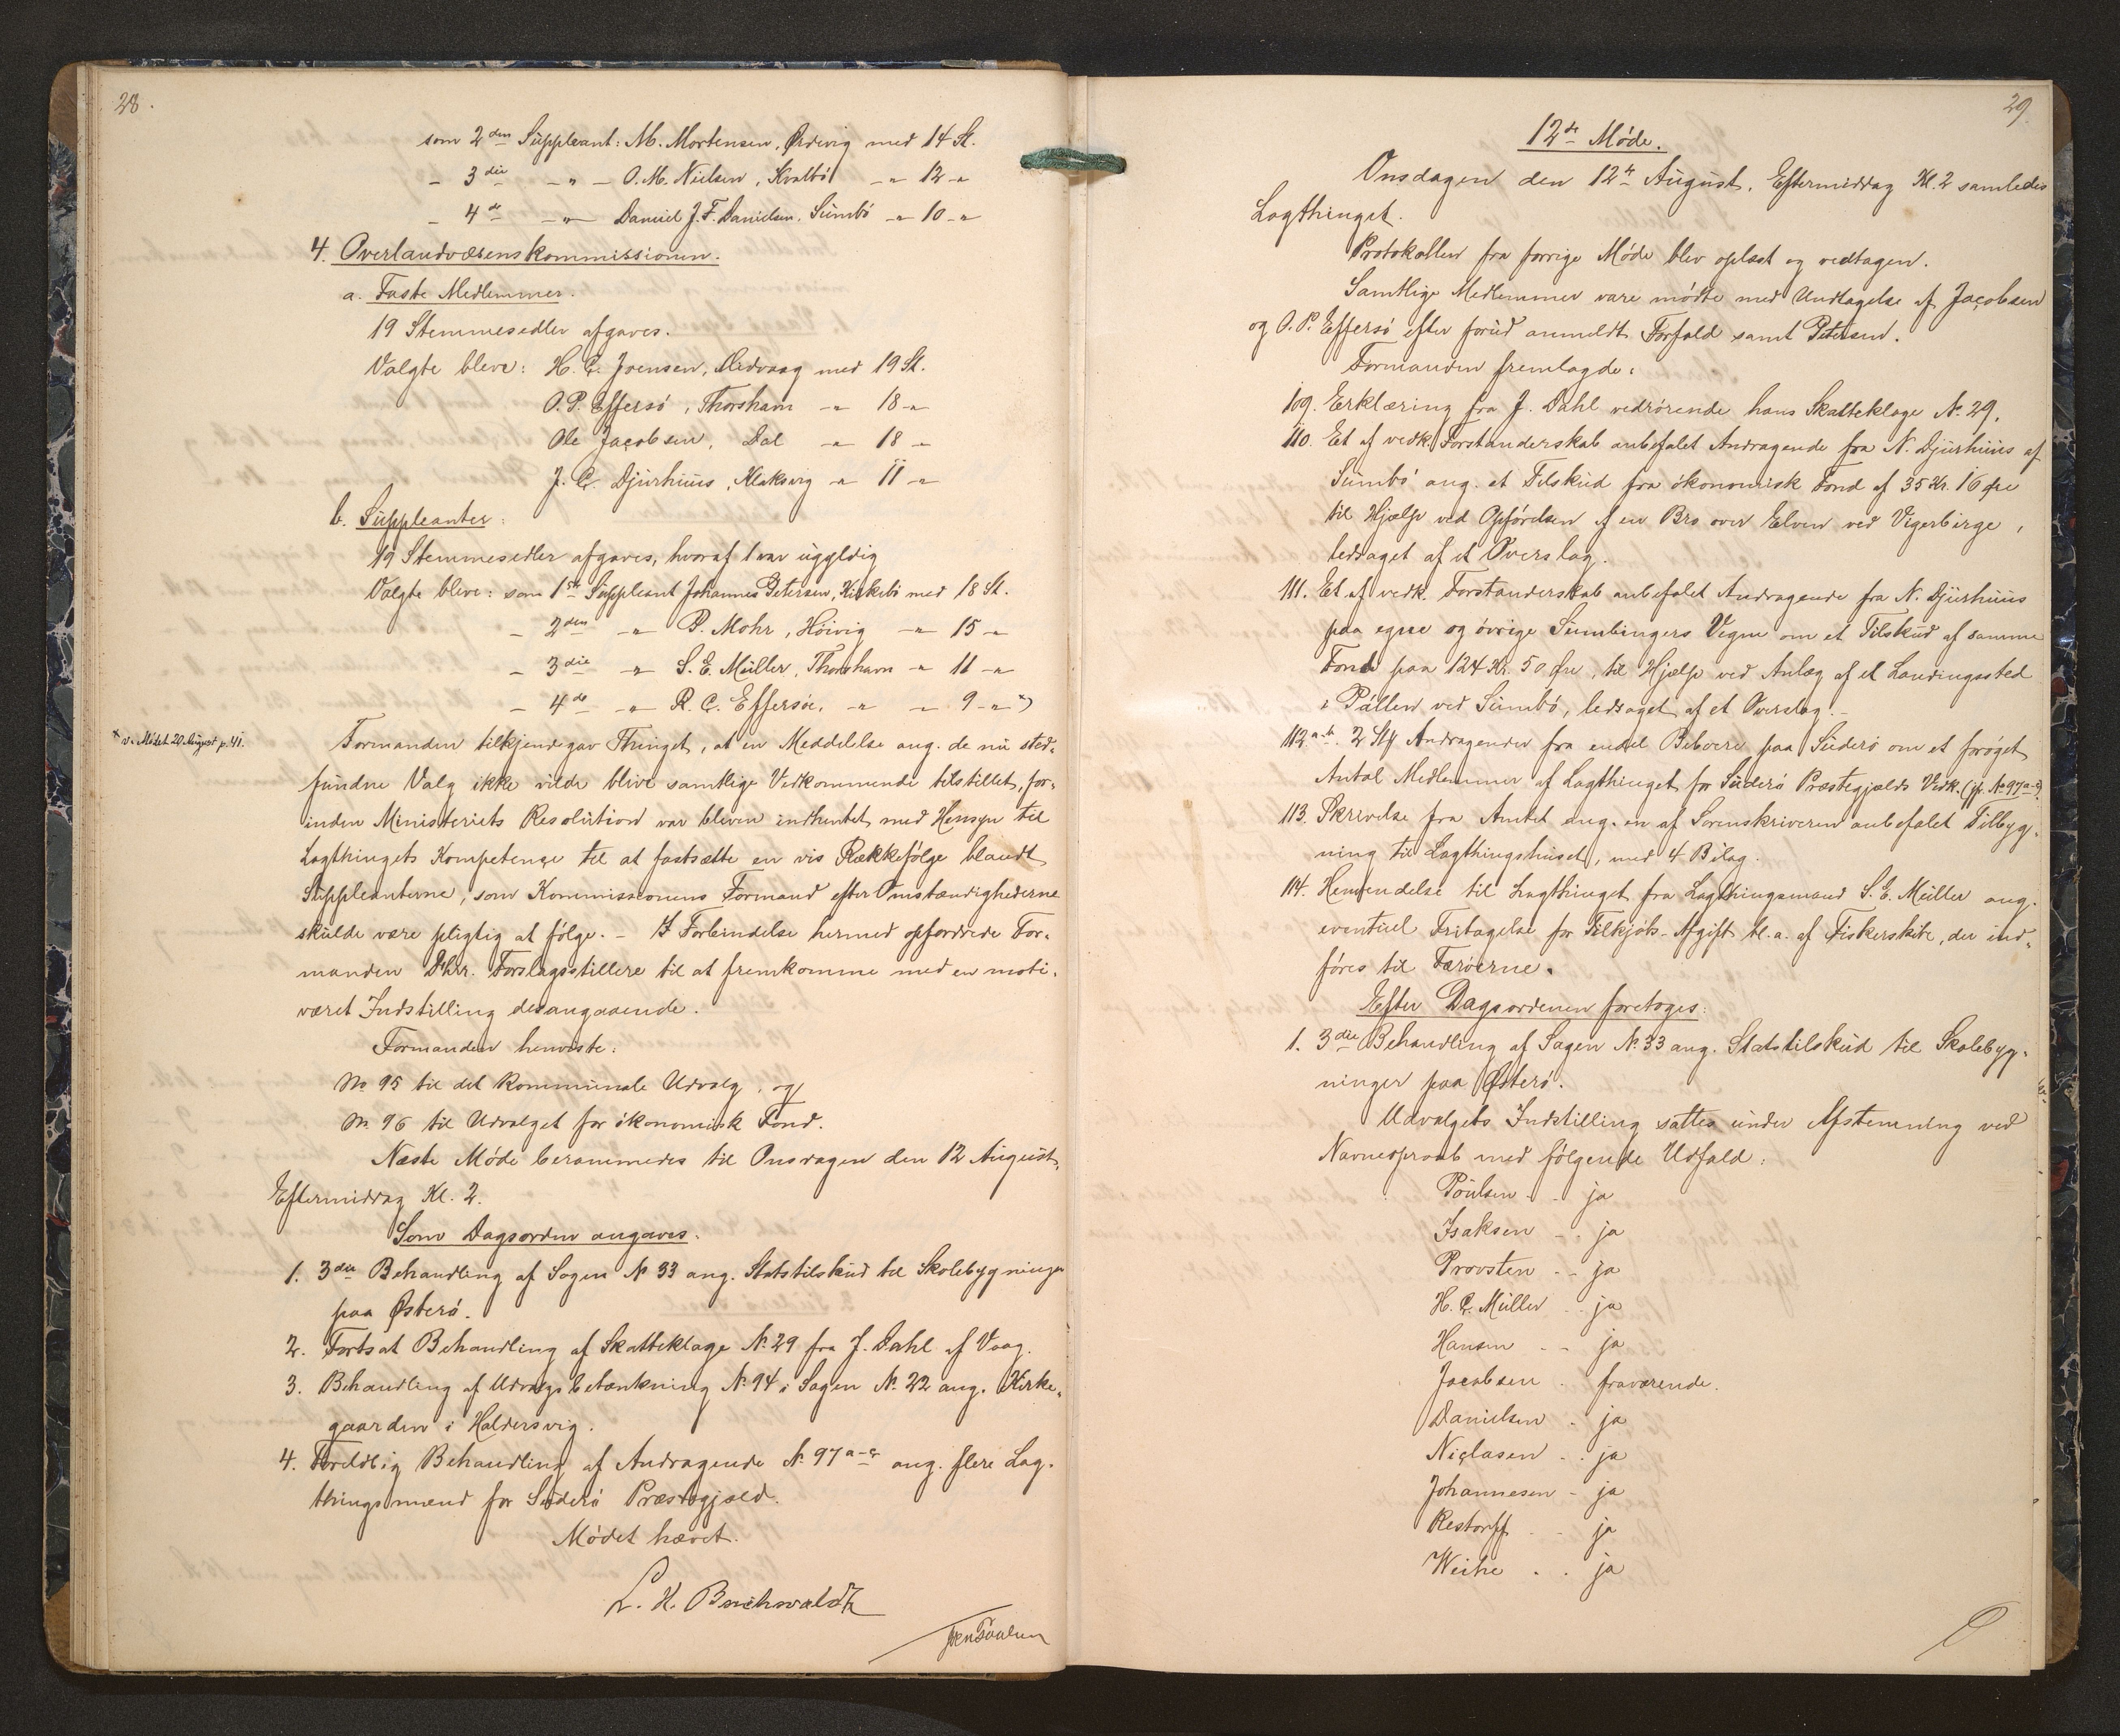 28.
som 2den Suppleant: M. Mortensen, Ørdevig med 14 St.
– 3die –„– O. M. Nielsen, Kvalbö –„ 12 –„
– 4de –„– Daniel J. F. Danielsen, Sumbö –„ 10 –„
4. Overlandvæsenskommissionen.
a. Faste Medlemmer.
19 Stemmesedler afgaves.
Valgte bleve: H. C. Joensen, Midvaag med 19 St.
O. P. Effersö, Thorshavn –„ 18 –„
Ole Jacobsen, Dal –„ 18 –„
J. C. Djurhuus, Klaksvig –„ 11 –„
b. Suppleanter:
19 Stemmesedler afgaves, hvoraf 1 var ugyldig
Valgte bleve: som 1ste Suppleant Johannes Petersen, Kirkebö med 18 St.
– 2den –„ P. Mohr, Hoivig –„ 15 –„
– 3die –„ S. E. Müller, Thorshavn –„ 11 –„
– 4de –„ R. C. Effersöe, –„ –„ 9 –„ *)
* v. Mödet 20 August p. 41.
Formanden tilkjendegav Thinget, at en Meddelelse ang. de nu sted-
fundne Valg ikke vilde blive samtlige Vedkommende tilstillet, for-
inden Ministeriets Resolution var bleven indhentet med Hensyn til
Lagthingets Kompetence til at fastsætte en vis Rækkefölge blandt
Suppleanterne, som Kommissionens Formand efter Omstændighederne
skulde være pligtig at fölge. – I Forbindelse hermed opfordrede For-
manden DHrr. Forslagsstillere til at fremkomme med en moti-
veret Indstilling desangaaende.
Formanden henviste:
No 95 til det kommunale Udvalg, og
No 96 til Udvalget for ökonomisk Fond.
Næste Möde berammedes til Onsdagen den 12 August,
Eftermiddag Kl. 2.
Som Dagsorden angaves.
1. 3die Behandling af Sagen No 33 ang. Statstilskud til Skolebygninger
paa Österö.
2. Fortsat Behandling af Skatteklage No 29 fra J. Dahl af Vaag.
3. Behandling af Udvalgsbetænkning No 94 i Sagen No 22 ang. Kirke-
gaarden i Haldersvig.
4. Foreløbig Behandling af Andragende No 97 a–c ang. flere Lag-
thingsmænd for Suderö Præstegjæld.
Mödet hævet.
L. H. Buchwaldt
Joen Poulsen
29
12te Möde.
Onsdagen den 12te August, Eftermiddag Kl. 2 samledes
Lagthinget.
Protokollen fra forrige Möde blev oplæst og vedtagen.
Samtlige Medlemmer vare mödte med Undtagelse af Jacobsen
og O. P. Effersö efter forud anmeldt Forfald samt Petersen.
Formanden fremlagde:
109. Erklæring fra J. Dahl vedrörende hans Skatteklage No 29.
110. Et af vedk. Forstanderskab anbefalet Andragende fra N. Djurhuus af
Sumbö ang. et Tilskud fra ökonomisk Fond af 35 Kr. 16 Øre
til Hjælp ved Opförelsen af en Bro over Elven ved Vigerbirge,
ledsaget af et Overslag.
111. Et af vedk. Forstanderskab anbefalet Andragende fra N. Djurhuus
paa egne og övrige Sumbingers Vegne om et Tilskud af samme
Fond paa 124 Kr. 50 Øre, til Hjælp ved Anlæg af et Landingssted
i Pollen ved Sumbö, ledsaget af et Overslag. –
112 a–b. 2 Stk Andragender fra endel Beboere paa Suderö om et foröget
Antal Medlemmer af Lagthinget for Suderö Præstegjælds Vedk. (jf. No 97 a–c)
113. Skrivelse fra Amtet ang. en af Sorenskriveren anbefalet Tilbyg-
ning til Lagthingshuset, med 4 Bilag.
114. Henvendelse til Lagthinget fra Lagthingsmand S. E. Müller ang.
eventuel Fritagelse for Tilkjøbs-Afgift bl. a. af Fiskerskibe, der ind-
föres til Færöerne.
Efter Dagsordenen foretoges:
1. 3die Behandling af Sagen No 33 ang. Statstilskud til Skolebyg-
ninger paa Österö.
Udvalgets Indstilling sattes under Afstemning ved
Navneopraab med fölgende Udfald:
Poulsen – – ja
Isaksen – – ja
Provsten – – ja
H. C. Müller – – ja
Hansen – – ja
Jacobsen – fraværende.
Danielsen – ja
Niclasen – – ja
Johannesen – ja
Restorff – – ja
Weihe – – ja